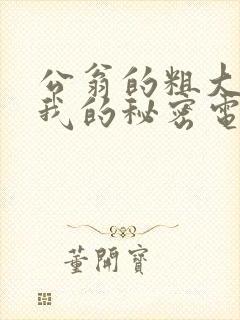 公翁的粗大
我的秘密電
董開寶